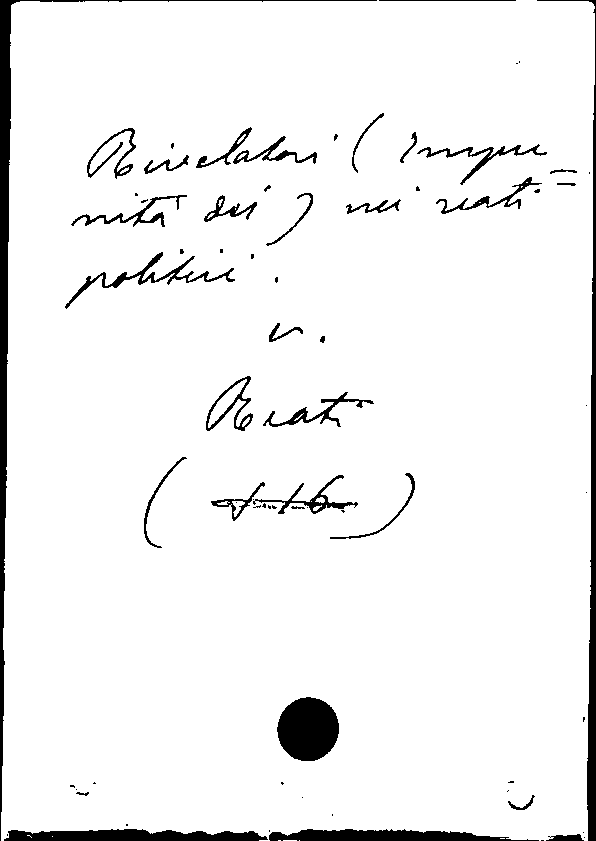 Rivelatori (Impu=
nità dei) nei reati
politici.
v.
Reati
( 116 )